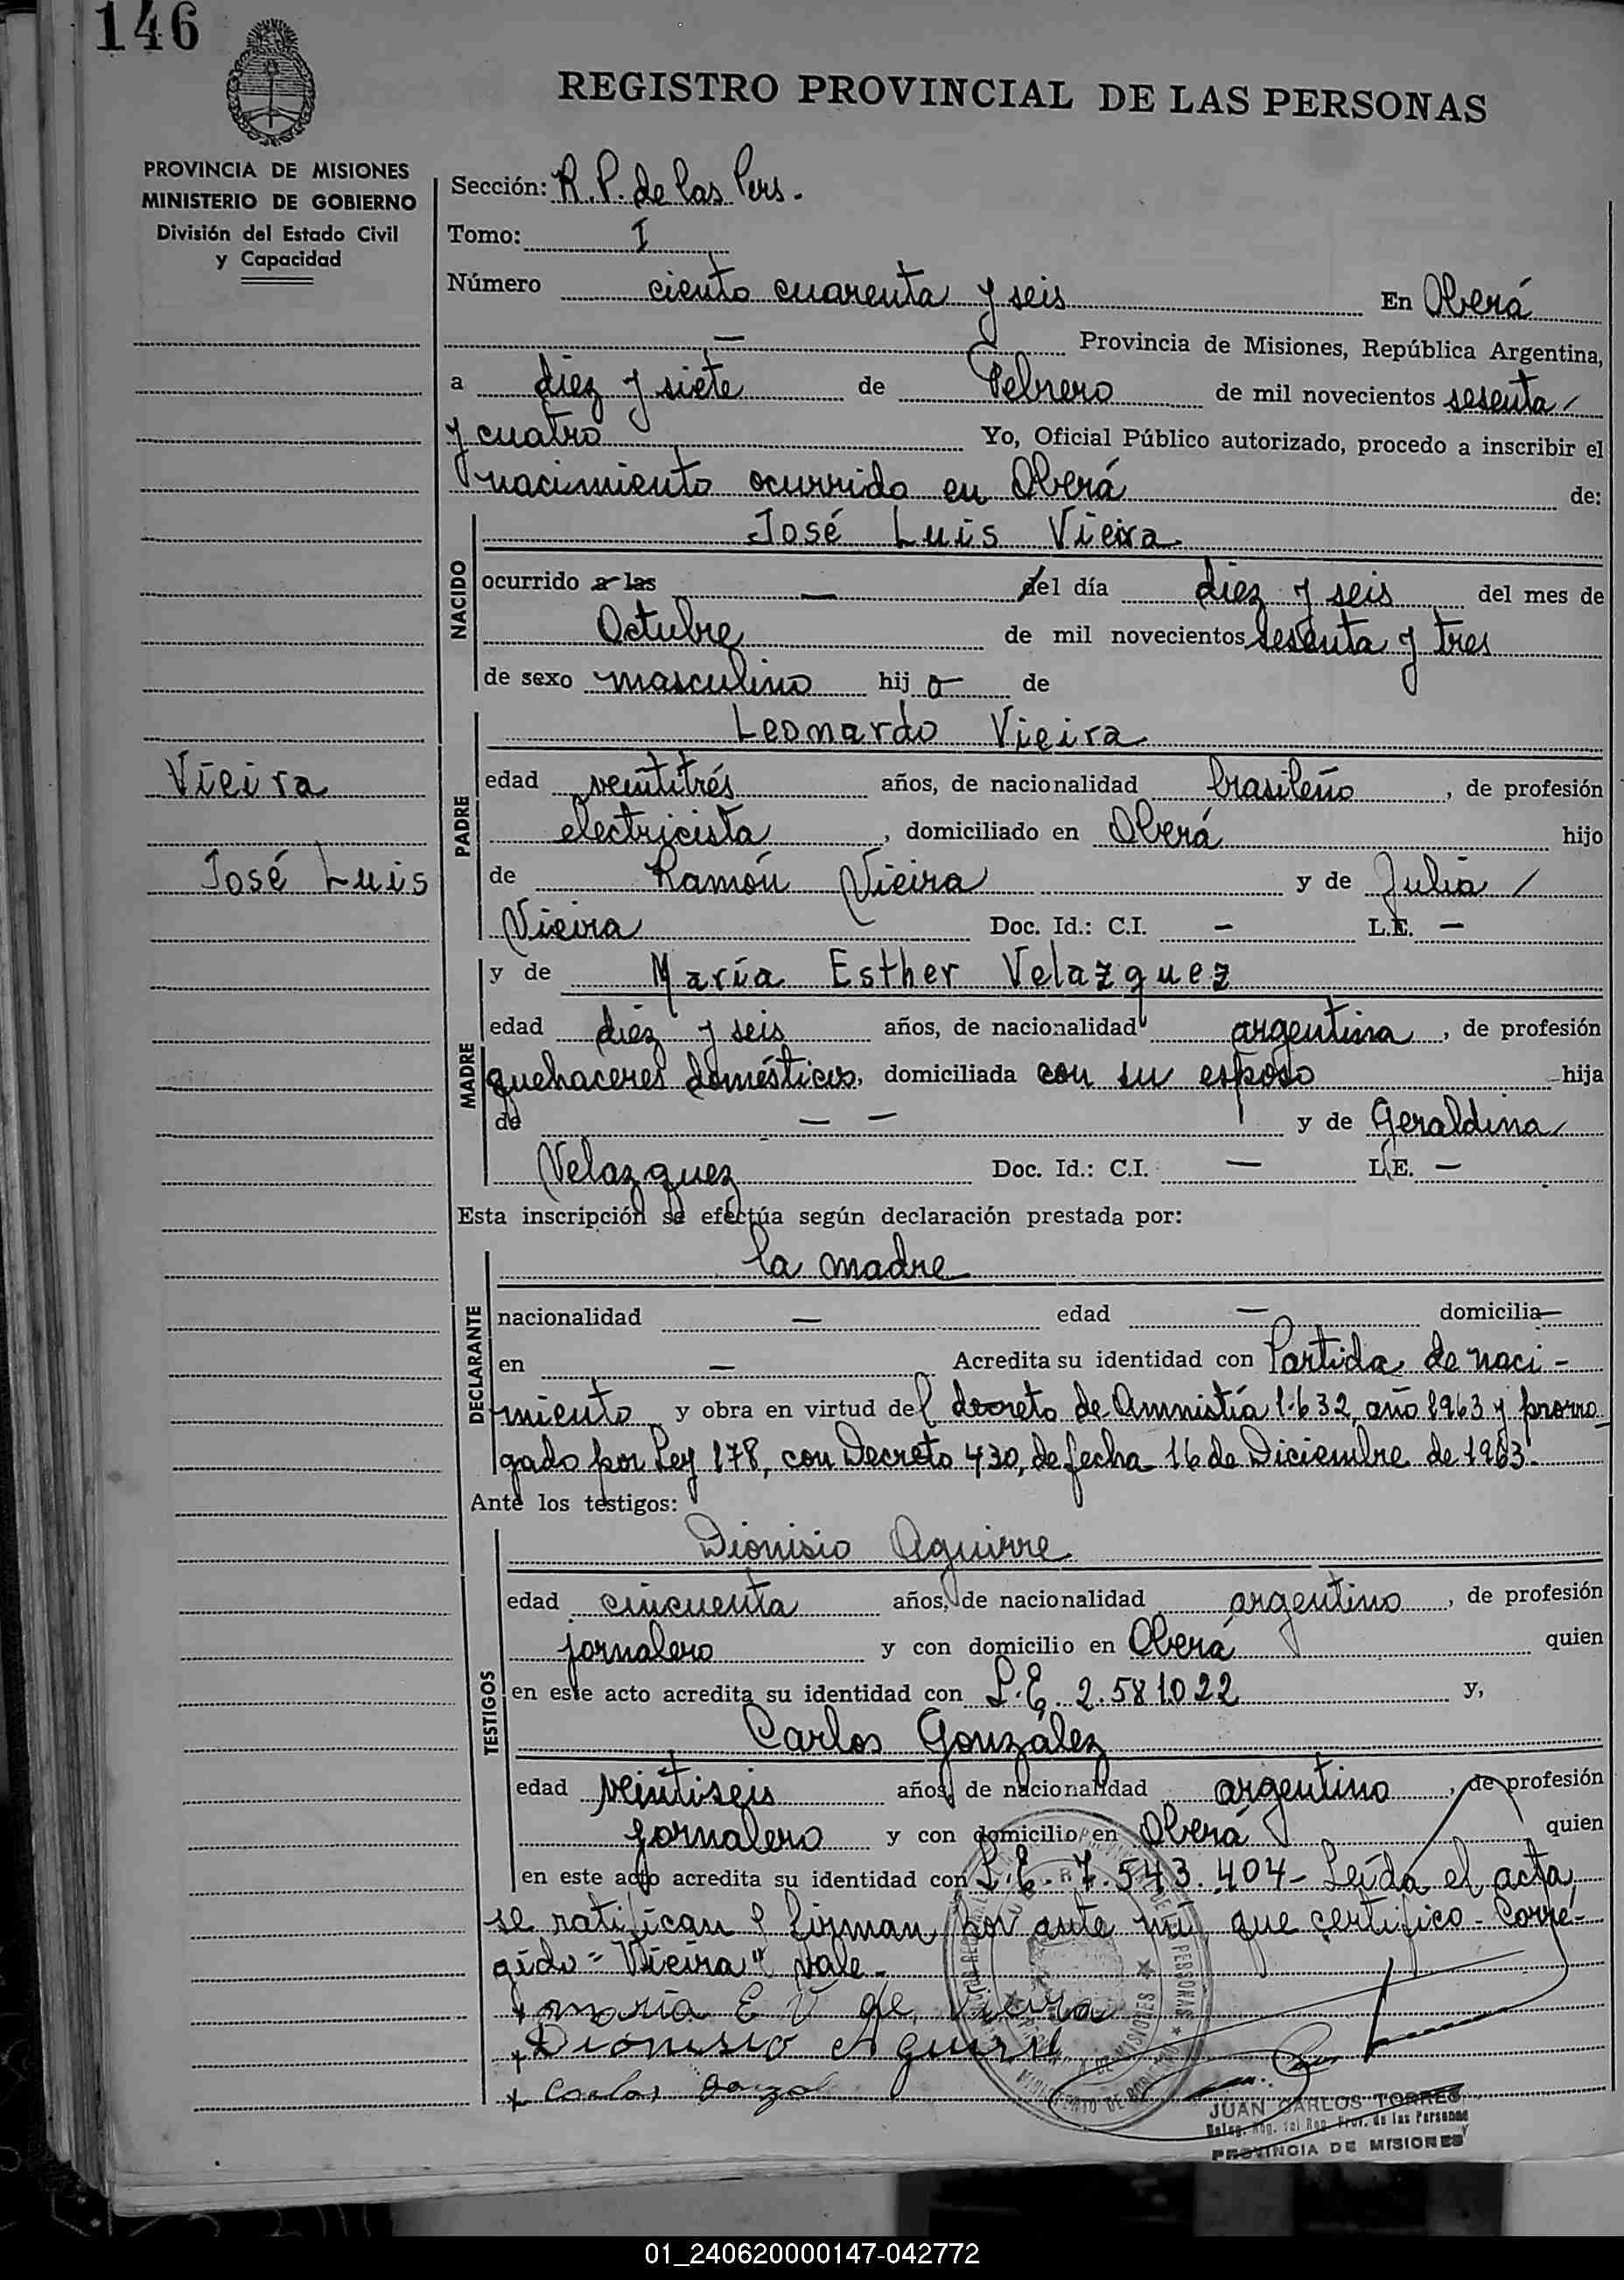 146
REGISTRO PROVINCIAL DE LAS PERSONAS
PROVINCIA DE MISIONES
MINISTERIO DE GOBIERNO
División del Estado Civil
y Capacidad
Sección: R. P. de las Pers.
Tomo: I
Número ciento cuarenta y seis En Oberá
— Provincia de Misiones, República Argentina,
a diez y siete de Febrero de mil novecientos sesenta /
y cuatro Yo, Oficial Público autorizado, procedo a inscribir el
nacimiento ocurrido en Oberá de:
NACIDO
José Luis Vieira
ocurrido a las — del día diez y seis del mes de
Octubre de mil novecientos sesenta y tres
de sexo masculino hij o de
PADRE
Leonardo Vieira
Vieira
edad veintitrés años, de nacionalidad brasileño, de profesión
electricista, domiciliado en Oberá hijo
José Luis
de Ramón Vieira y de Julia /
Vieira Doc. Id.: C.I. — L.E. —
MADRE
y de María Esther Velazquez
edad diez y seis años, de nacionalidad argentina, de profesión
quehaceres domésticos, domiciliada con su esposo hija
de — — y de Geraldina
Velazquez Doc. Id.: C.I. — L.E. —
Esta inscripción se efectúa según declaración prestada por:
DECLARANTE
la madre
nacionalidad — edad — domicilia—
en — Acredita su identidad con Partida de naci-
miento y obra en virtud del decreto de Amnistía 1.632, año 1963 y prorro
gado por Ley 178, con Decreto 430, de fecha 16 de Diciembre de 1963.
Ante los testigos:
TESTIGOS
Dionisio Aguirre
edad cincuenta años, de nacionalidad argentino, de profesión
jornalero y con domicilio en Oberá quien
en este acto acredita su identidad con L.E. 2.581.022 y,
Carlos González
edad veintiseis años, de nacionalidad argentino, de profesión
jornalero y con domicilio en Oberá quien
en este acto acredita su identidad con L.E. 7.543.404- Leída el acta,
se ratifican y firman por ante mí, que certifico - Corre-
gido "Vieira" Vale.
x maria E V de Vieira
x Dionisio Aguirre
x Carlos
JUAN CARLOS TORRES
PROVINCIA DE MISIONES
01_240620000147-042772